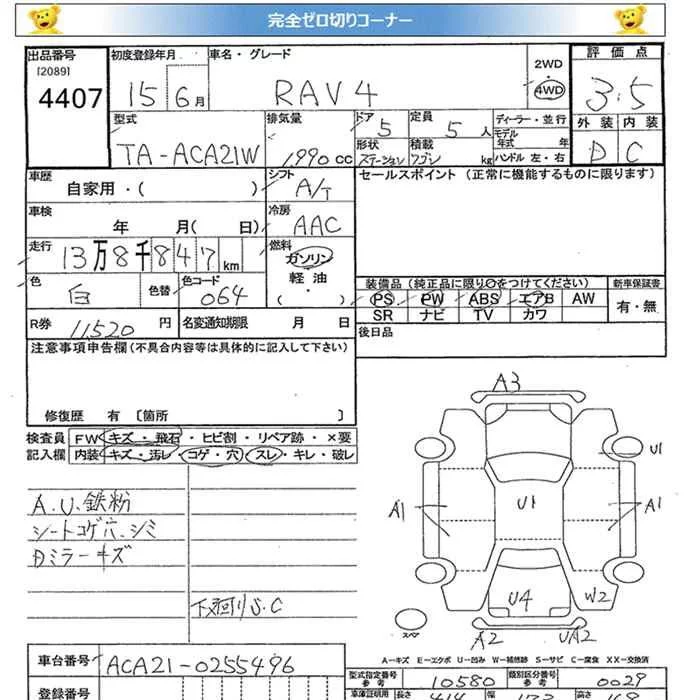 完全ゼロ切りコーナー
出品番号 [2089] 4407
初度登録年月 15 6月
車名・グレード RAV4
2WD・4WD
評価点 3.5
外装 D 内装 C
型式 TA-ACA21W
排気量 1990 cc
ドア 5
定員 5 人
形状 ステーションワゴン
積載 kg
ディーラー・並行
モデル年式 年
ハンドル 左・右
車歴 自家用・( )
シフト A/T
セールスポイント (正常に機能するものに限ります)
車検 年 月( 日)
冷房 AAC
走行 13万8千847km
燃料 ガソリン 軽油 ( )
色 白 色替
色コード 064
装備品 (純正品に限り○をつけてください)
新車保証書
PS PW ABS エアB AW
有・無
SR ナビ TV カワ
R券 11,520 円
名変通知期限 月 日
後日品
注意事項申告欄 (不具合内容等は具体的に記入して下さい)
修復歴 有 〔箇所 〕
検査員記入欄
FW キズ・飛石・ヒビ割・リペア跡・×要
内装 キズ・汚レ・コゲ・穴・スレ・キレ・破レ
A3
U1
A1 U1 A1
U4 W2
A2 UA2
スペア
A.U.鉄粉
シートコゲ穴.シミ
Dミラーキズ
下廻りS.C
A-キズ E-エクボ U-凹み W-補修跡 S-サビ C-腐食 XX-交換済
車台番号 ACA21-0255496
型式指定番号 参考 10580
類別区分番号 参考 0029
登録番号
車庫証明用 参考
長さ 414
幅 173
高さ